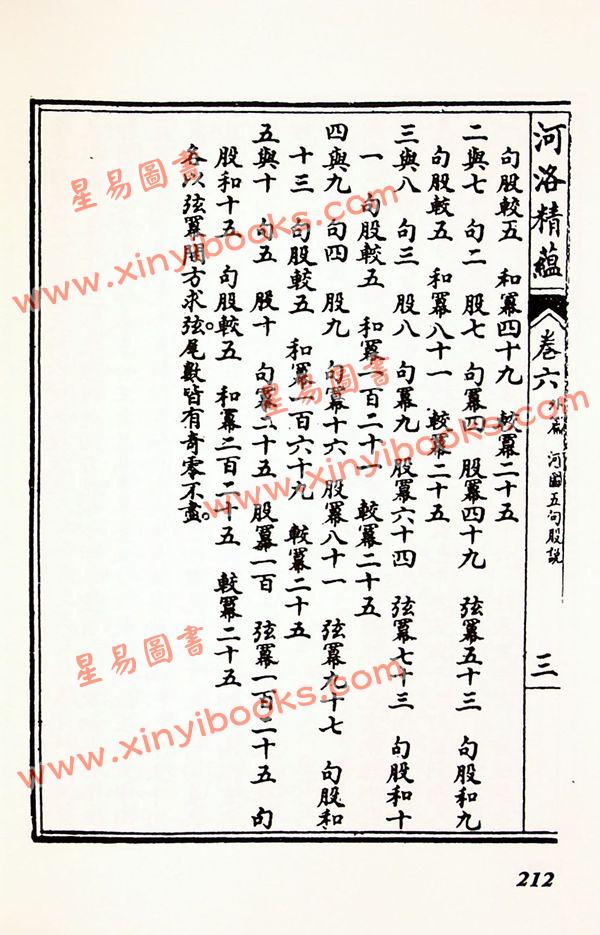 河洛精蘊
卷六 外篇 河圖五句股說
三
句股較五 和冪四十九 較冪二十五
二與七 句二 股七 句冪四 股冪四十九 弦冪五十三 句股和九
句股較五 和冪八十一 較冪二十五
三與八 句三 股八 句冪九 股冪六十四 弦冪七十三 句股和十
一 句股較五 和冪一百二十一 較冪二十五
四與九 句四 股九 句冪十六 股冪八十一 弦冪九十七 句股和
十三 句股較五 和冪一百六十九 較冪二十五
五與十 句五 股十 句冪二十五 股冪一百 弦冪一百二十五 句
股和十五 句股較五 和冪二百二十五 較冪二十五
各以弦冪開方求弦。尾數皆有奇零不盡。
212
星易圖書
www.xinyibooks.com
星易圖書
www.xinyibooks.com
星易圖書
www.xinyibooks.com